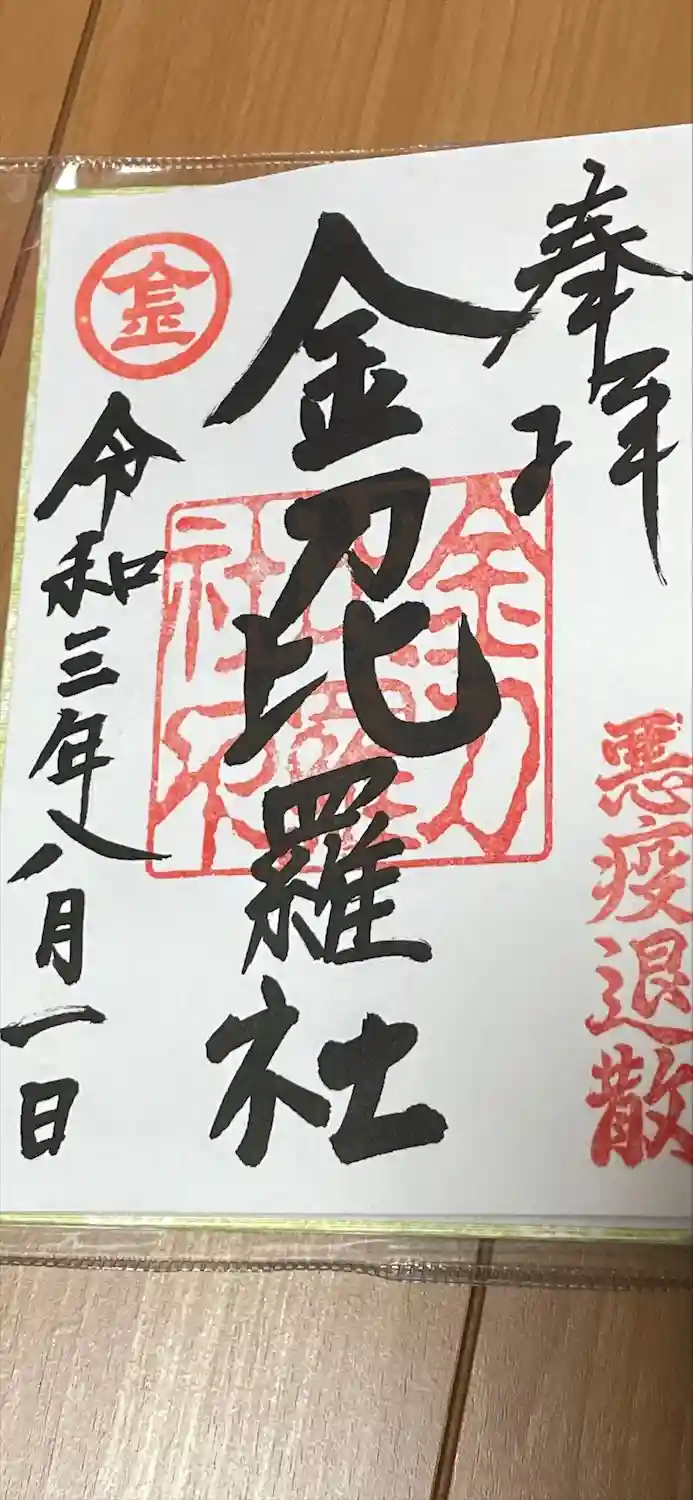 奉拝
悪疫退散
金刀比羅社
金刀
比羅
社
金
令和三年八月一日